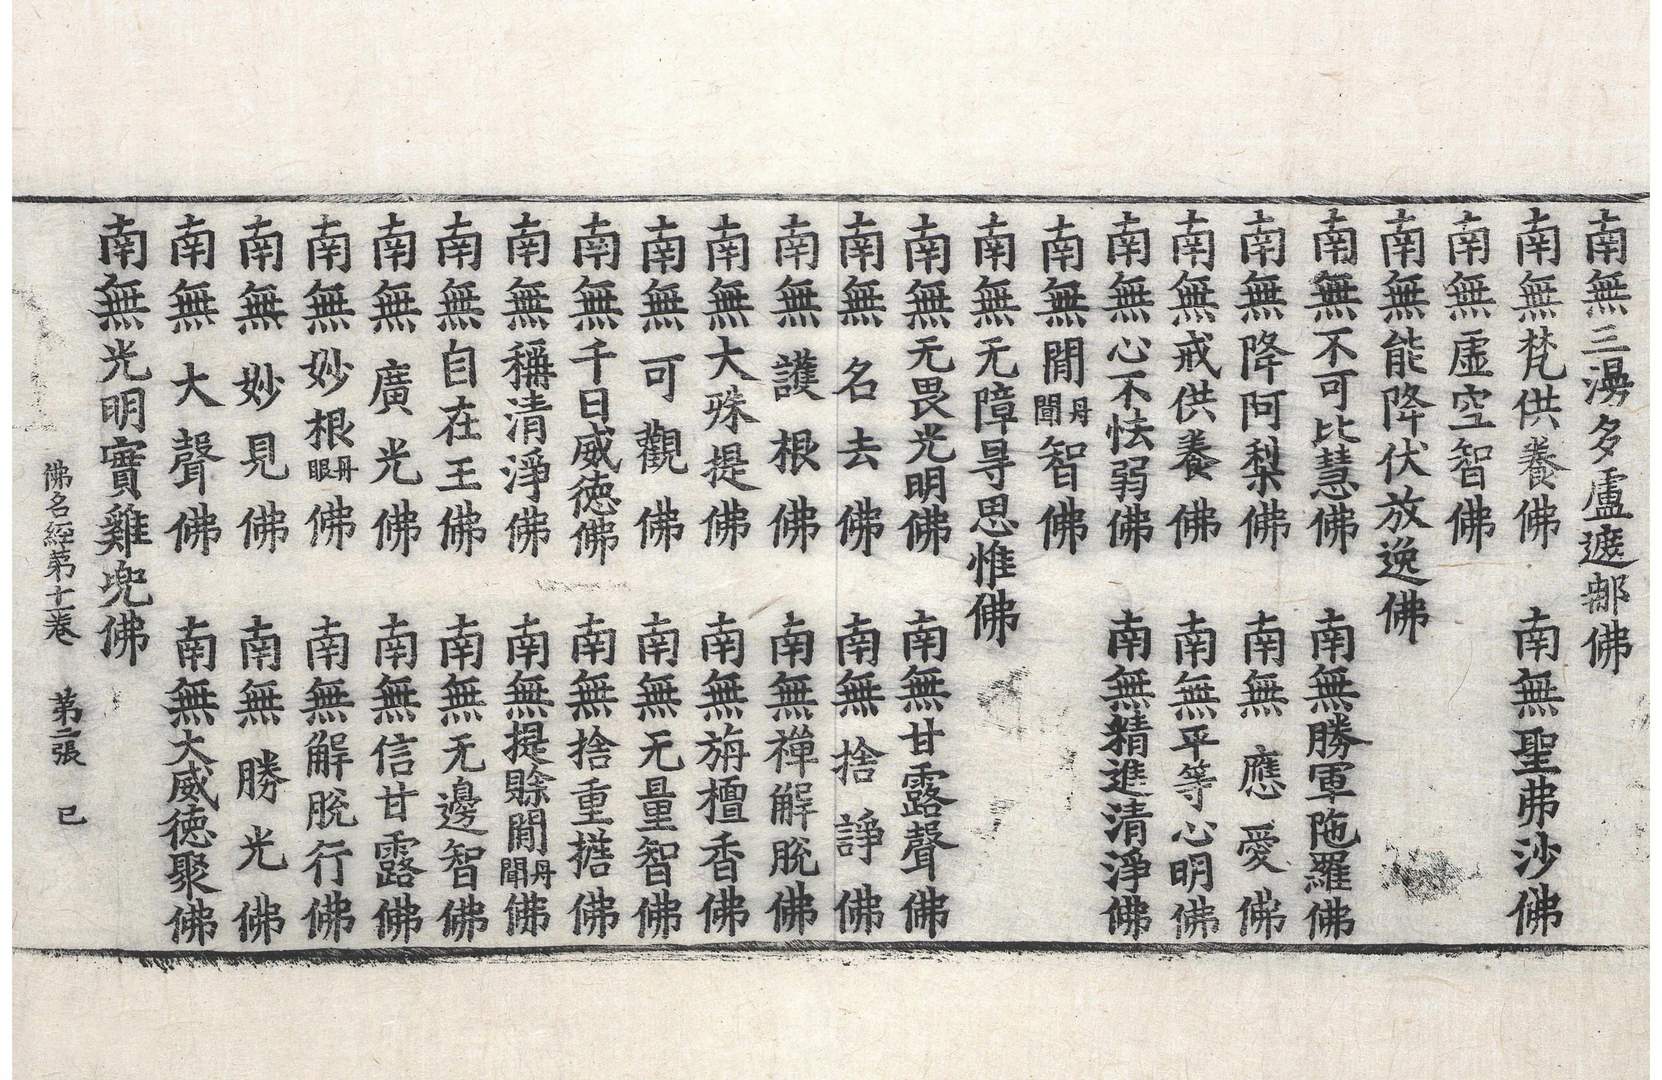 南無三湯多盧遮那佛
南無梵供養佛　南無聖弗沙佛
南無虛空智佛
南無能降伏放逸佛
南無不可比慧佛　南無勝軍陁羅佛
南無降阿梨佛　南無應愛佛
南無戒供養佛　南無平等心明佛
南無心不怯弱佛　南無精進清淨佛
南無閒丹聞智佛
南無无障㝵思惟佛
南無无畏光明佛　南無甘露聲佛
南無名去佛　南無捨諍佛
南無護根佛　南無禪解脫佛
南無大殊提佛　南無栴檀香佛
南無可觀佛　南無无量智佛
南無千日威德佛　南無捨重擔佛
南無稱清淨佛　南無提賖閒丹聞佛
南無自在王佛　南無无邊智佛
南無廣光佛　南無信甘露佛
南無妙根丹眼佛　南無解脫行佛
南無妙見佛　南無勝光佛
南無大聲佛　南無大威德聚佛
南無光明寶雞兜佛
佛名經第十一卷　第二張　已